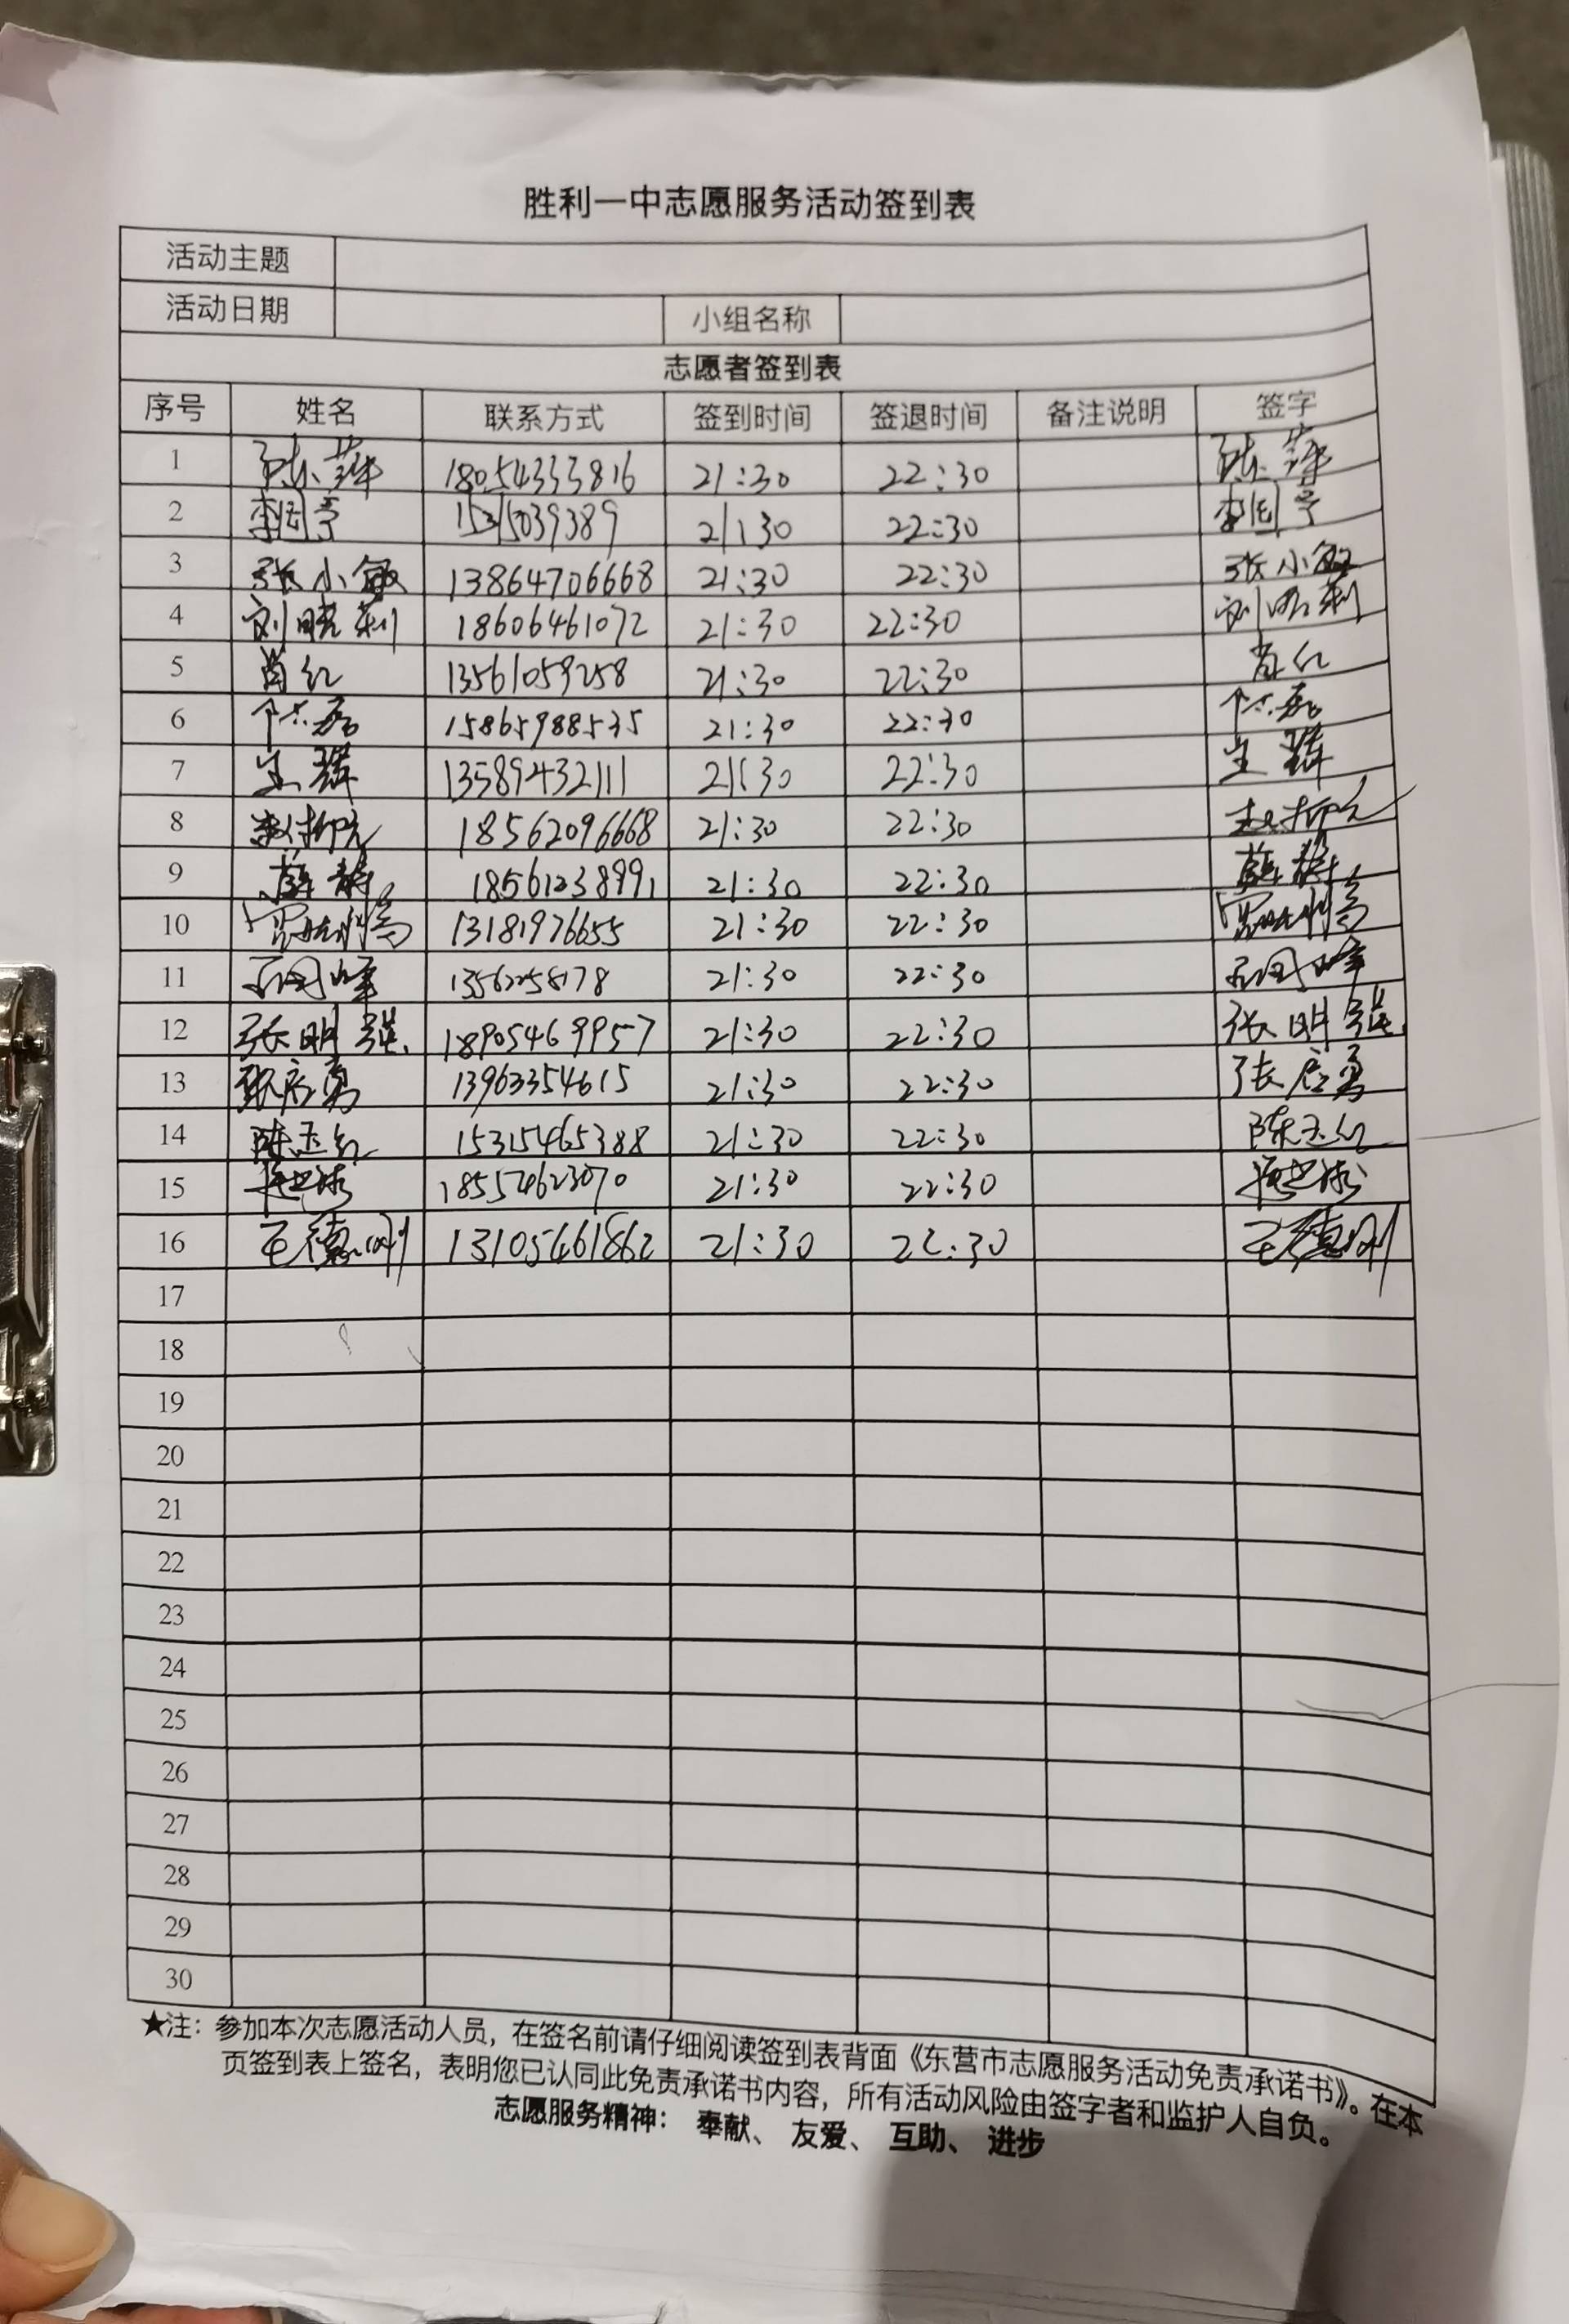 胜利一中志愿服务活动签到表
活动主题
活动日期 小组名称
志愿者签到表
序号 姓名 联系方式 签到时间 签退时间 备注说明 签字
1 陈萍 18054333816 21:30 22:30 陈萍
2 李国亭 21:30 22:30 李国亭
3 张小敏 13864706668 21:30 22:30 张小敏
4 刘晓莉 18606461072 21:30 22:30 刘晓莉
5 肖红 13561059258 21:30 22:30 肖红
6 15865988535 21:30 22:30
7 13589432111 21:30 22:30
8 18562096668 21:30 22:30
9 薛静 18561238991 21:30 22:30 薛静
10 13181976655 21:30 22:30
11 21:30 22:30
12 张明 18905469957 21:30 22:30 张明
13 13963354615 21:30 22:30
14 陈玉红 15315465388 21:30 22:30 陈玉红
15 18554623070 21:30 22:30
16 王德刚 13105461862 21:30 22:30 王德刚
17
18
19
20
21
22
23
24
25
26
27
28
29
30
★注：参加本次志愿活动人员，在签名前请仔细阅读签到表背面《东营市志愿服务活动免责承诺书》。在本
页签到表上签名，表明您已认同此免责承诺书内容，所有活动风险由签字者和监护人自负。
志愿服务精神：奉献、友爱、互助、进步